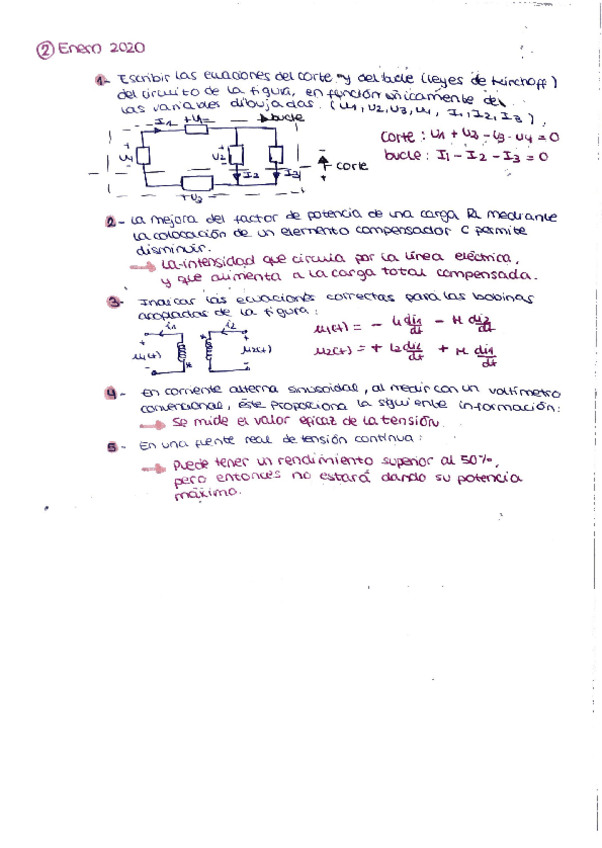 ② Enero 2020
1- Escribir las ecuaciones del corte y del bucle (leyes de Kirchoff)
del circuito de la figura, en función únicamente de
las variables dibujadas. (U1, U2, U3, U4, I1, I2, I3).
I1 +U1- bucle
corte: U1 + U2 - U3 - U4 = 0
bucle: I1 - I2 - I3 = 0
+ U4 -
U2
I2 I3
corte
+U3-
2- La mejora del factor de potencia de una carga RL mediante
la colocación de un elemento compensador C permite
disminuir.
→ La intensidad que circula por la línea eléctrica,
y que alimenta a la carga total compensada.
3- Indicar las ecuaciones correctas para las bobinas
acopladas de la figura:
i1 i2
u1(t) u2(t)
u1(t) = - L1 di1/dt - M di2/dt
u2(t) = + L2 di2/dt + M di1/dt
4- En corriente alterna sinusoidal, al medir con un voltímetro
convencional, éste proporciona la siguiente información:
→ Se mide el valor eficaz de la tensión.
5- En una fuente real de tensión continua:
→ Puede tener un rendimiento superior al 50%,
pero entonces no estará dando su potencia
máximo.